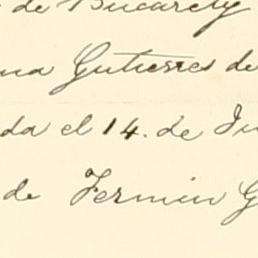 de Bucarely
na Gutierres de
da el 14. de Ju
de Fermin G